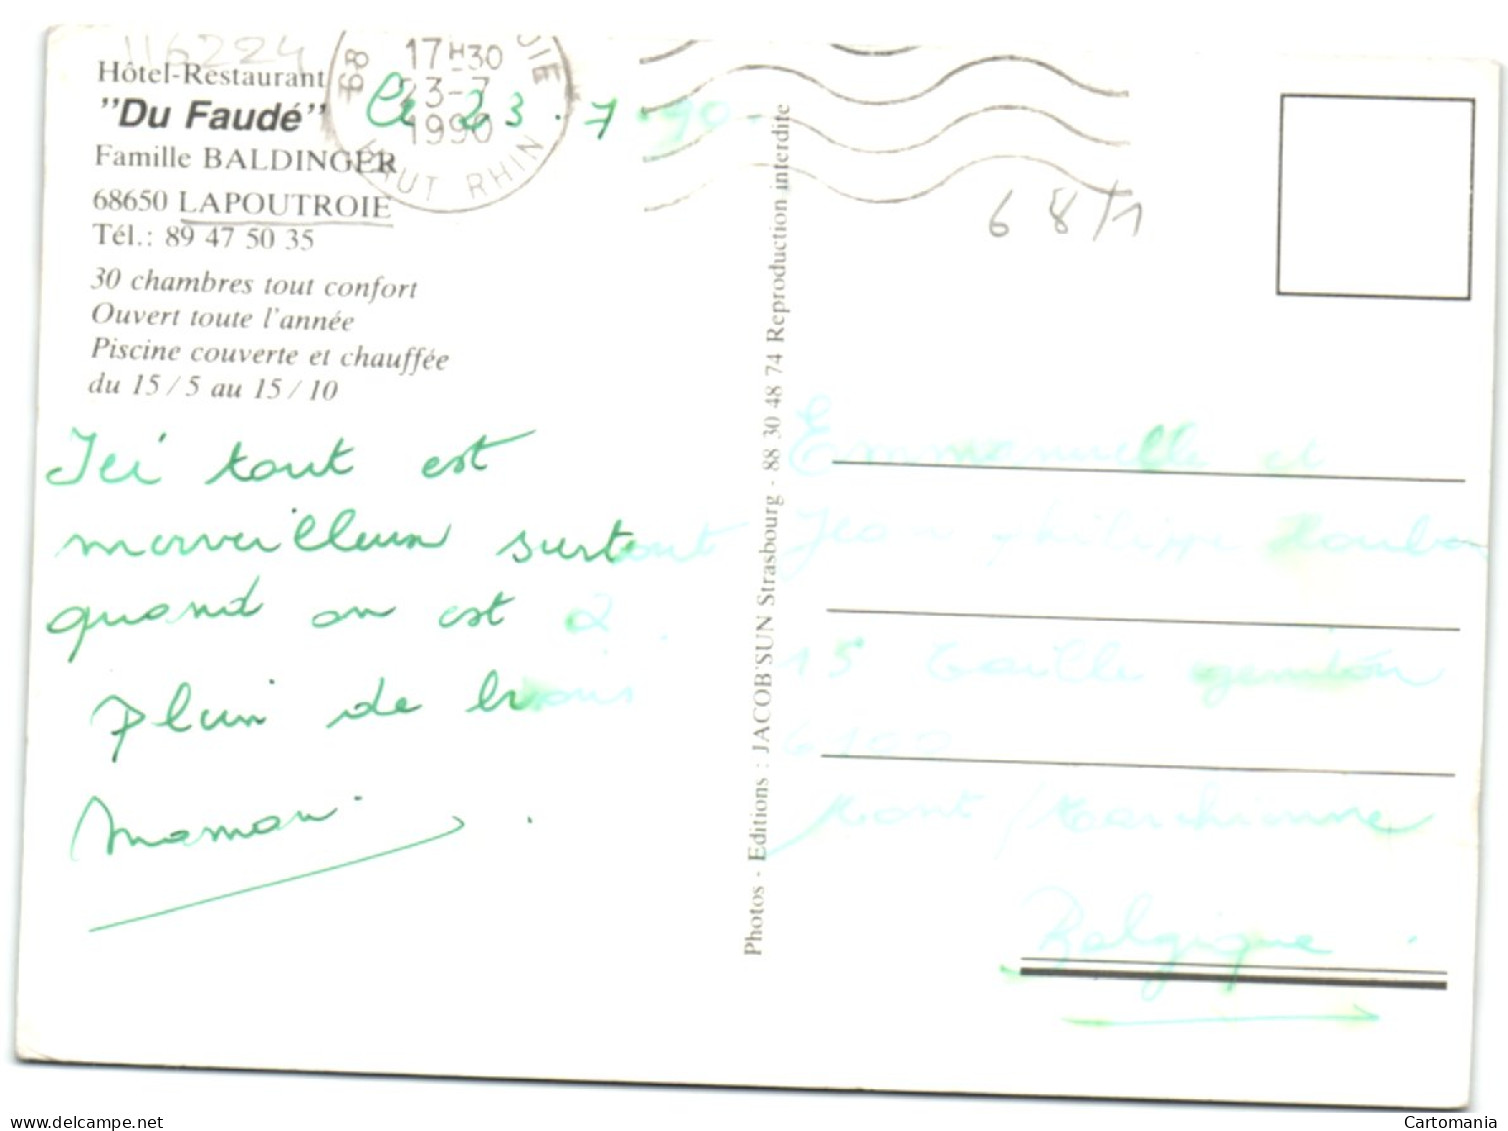 116224
Hôtel-Restaurant
"Du Faudé"
Famille BALDINGER
68650 LAPOUTROIE
Tél.: 89 47 50 35
30 chambres tout confort
Ouvert toute l'année
Piscine couverte et chauffée
du 15/5 au 15/10
68
17H30
23-7
1990
HAUT RHIN
Le 23.7.90.
Ici tout est
merveilleux surtout
quand on est 2.
Plein de bisous
Maman.
Photos - Editions : JACOB'SUN Strasbourg - 88 30 48 74 Reproduction interdite
68/1
Emmanuelle et
Jean Philippe
15
6100
Mont / Marchienne
Belgique.
delcampe.net
Cartomania